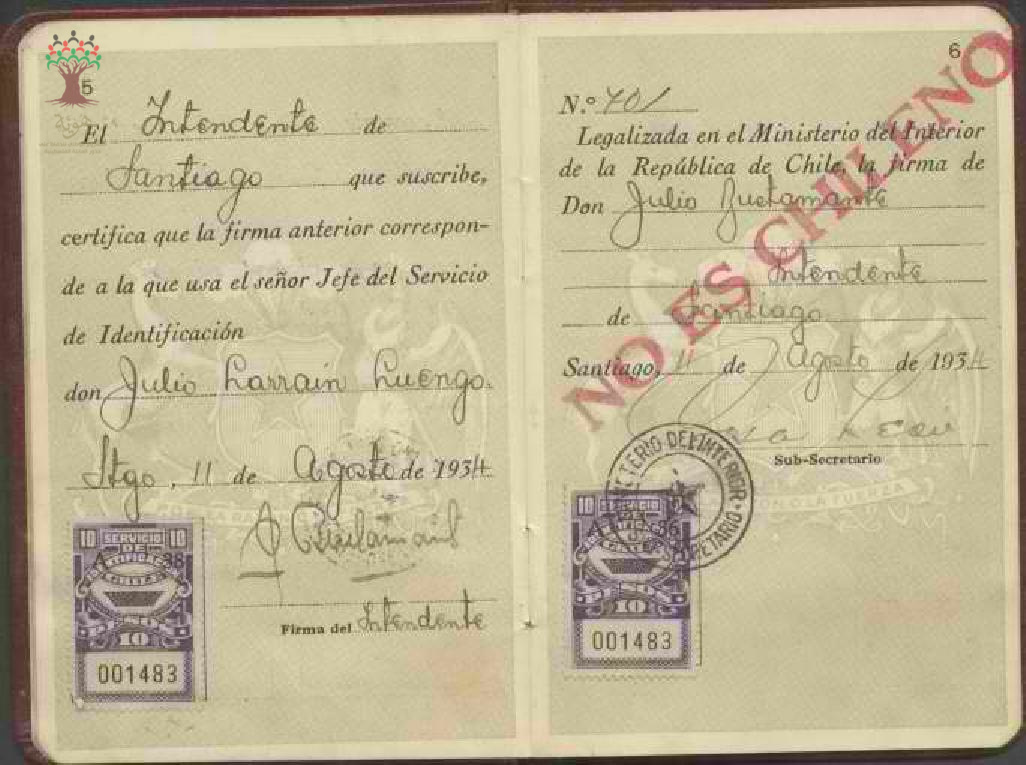 5
El Intendente de
Santiago que suscribe,
certifica que la firma anterior correspon-
de a la que usa el señor Jefe del Servicio
de Identificación
don Julio Larrain Luengo.
Stgo, 11 de Agosto de 1934
Firma del Intendente
10 SERVICIO 10
DE
10
001483
6
NO ES CHILENO
N.º 701
Legalizada en el Ministerio del Interior
de la República de Chile, la firma de
Don Julio Bustamante
Intendente
de Santiago
Santiago, 11 de Agosto de 1934
Sub-Secretario
MINISTERIO DEL INTERIOR
SUBSECRETARIO
10 SERVICIO 10
10
001483